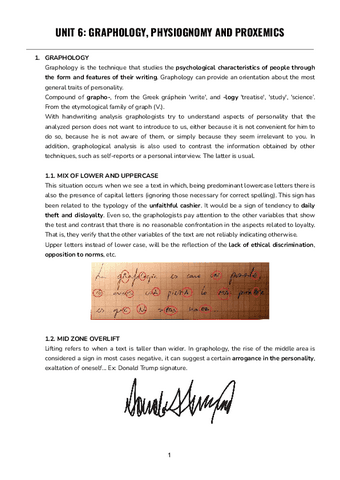 UNIT 6: GRAPHOLOGY, PHYSIOGNOMY AND PROXEMICS
1. GRAPHOLOGY
Graphology is the technique that studies the psychological characteristics of people through
the form and features of their writing. Graphology can provide an orientation about the most
general traits of personality.
Compound of grapho-, from the Greek gráphein 'write', and -logy 'treatise', 'study', 'science'.
From the etymological family of graph (V.).
With handwriting analysis graphologists try to understand aspects of personality that the
analyzed person does not want to introduce to us, either because it is not convenient for him to
do so, because he is not aware of them, or simply because they seem irrelevant to you. In
addition, graphological analysis is also used to contrast the information obtained by other
techniques, such as self-reports or a personal interview. The latter is usual.
1.1. MIX OF LOWER AND UPPERCASE
This situation occurs when we see a text in which, being predominant lowercase letters there is
also the presence of capital letters (ignoring those necessary for correct spelling). This sign has
been related to the typology of the unfaithful cashier. It would be a sign of tendency to daily
theft and disloyalty. Even so, the graphologists pay attention to the other variables that show
the test and contrast that there is no reasonable confrontation in the aspects related to loyalty.
That is, they verify that the other variables of the text are not reliably indicating otherwise.
Upper letters instead of lower case, will be the reflection of the lack of ethical discrimination,
opposition to norms, etc.
es
1.2. MID ZONE OVERLIFT
Lifting refers to when a text is taller than wider. In graphology, the rise of the middle area is
considered a sign in most cases negative, it can suggest a certain arrogance in the personality,
exaltation of oneself... Ex: Donald Trump signature.
1